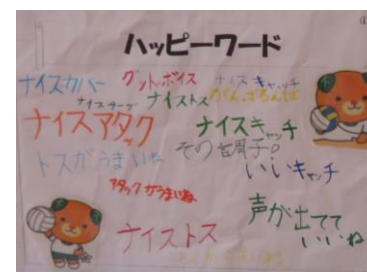 ハッピーワード
ナイスカバー
グットボイス
ナイスキャッチ
ナイスサーブ
ナイストス
がんばろんば
ナイスアタック
ナイスキャッチ
その調子?
トスがうまいね
いいキャッチ
アタックがうまいね
声が出てて
いいね
ナイストス